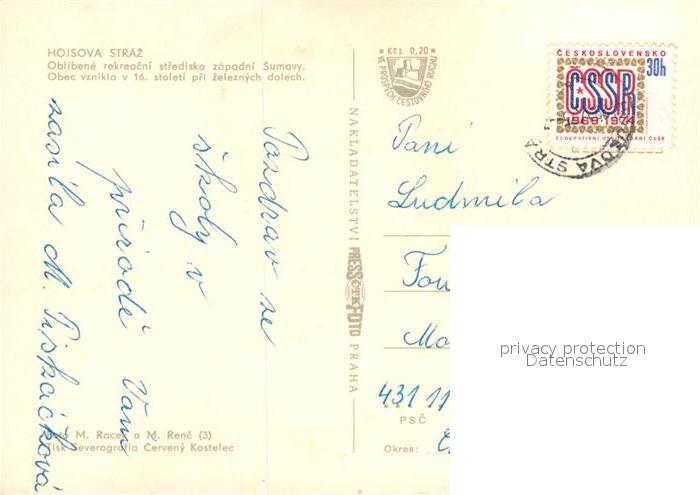 HOJSOVA STRÁŽ
Oblíbené rekreační středisko západní Šumavy.
Obec vznikla v 16. století při železných dolech.
Pozdrav ze
školy v
přírodě Vám
zasílá M. Piskáčková
Foto M. Racek a M. Renč (3)
Tisk Severografia Červený Kostelec
NAKLADATELSTVÍ PRESSFOTO PRAHA
ČTK
Kčs 0,20
VE PROSPĚCH CESTOVNÍHO RUCHU
ČESKOSLOVENSKO
30h
ČSSR
1969-1974
FEDERATIVNÍ USPOŘÁDÁNÍ ČSSR
OVA STRÁ
Paní
Ludmila
Fou
Mo
431 11
PSČ
Okres:
privacy protection
Datenschutz